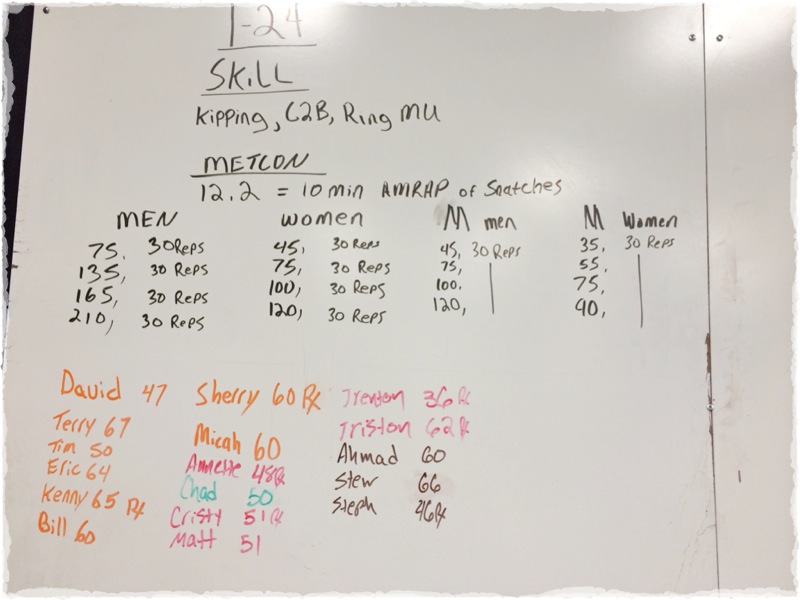 1-24
SKILL
Kipping, C2B, Ring MU
METCON
12.2 = 10 min AMRAP of Snatches
MEN
75, 30 Reps
135, 30 Reps
165, 30 Reps
210, 30 Reps
Women
45, 30 Reps
75, 30 Reps
100, 30 Reps
120, 30 Reps
M men
45, 30 Reps
75,
100,
120,
M Women
35, 30 Reps
55,
75,
90,
David 47
Terry 67
Tim 50
Eric 64
Kenny 65 Rx
Bill 60
Sherry 60 Rx
Micah 60
Annette 48 Rx
Chad 50
Cristy 51 Rx
Matt 51
Trenton 36 Rx
Triston 62 Rx
Ahmad 60
Stew 66
Steph 46 Rx